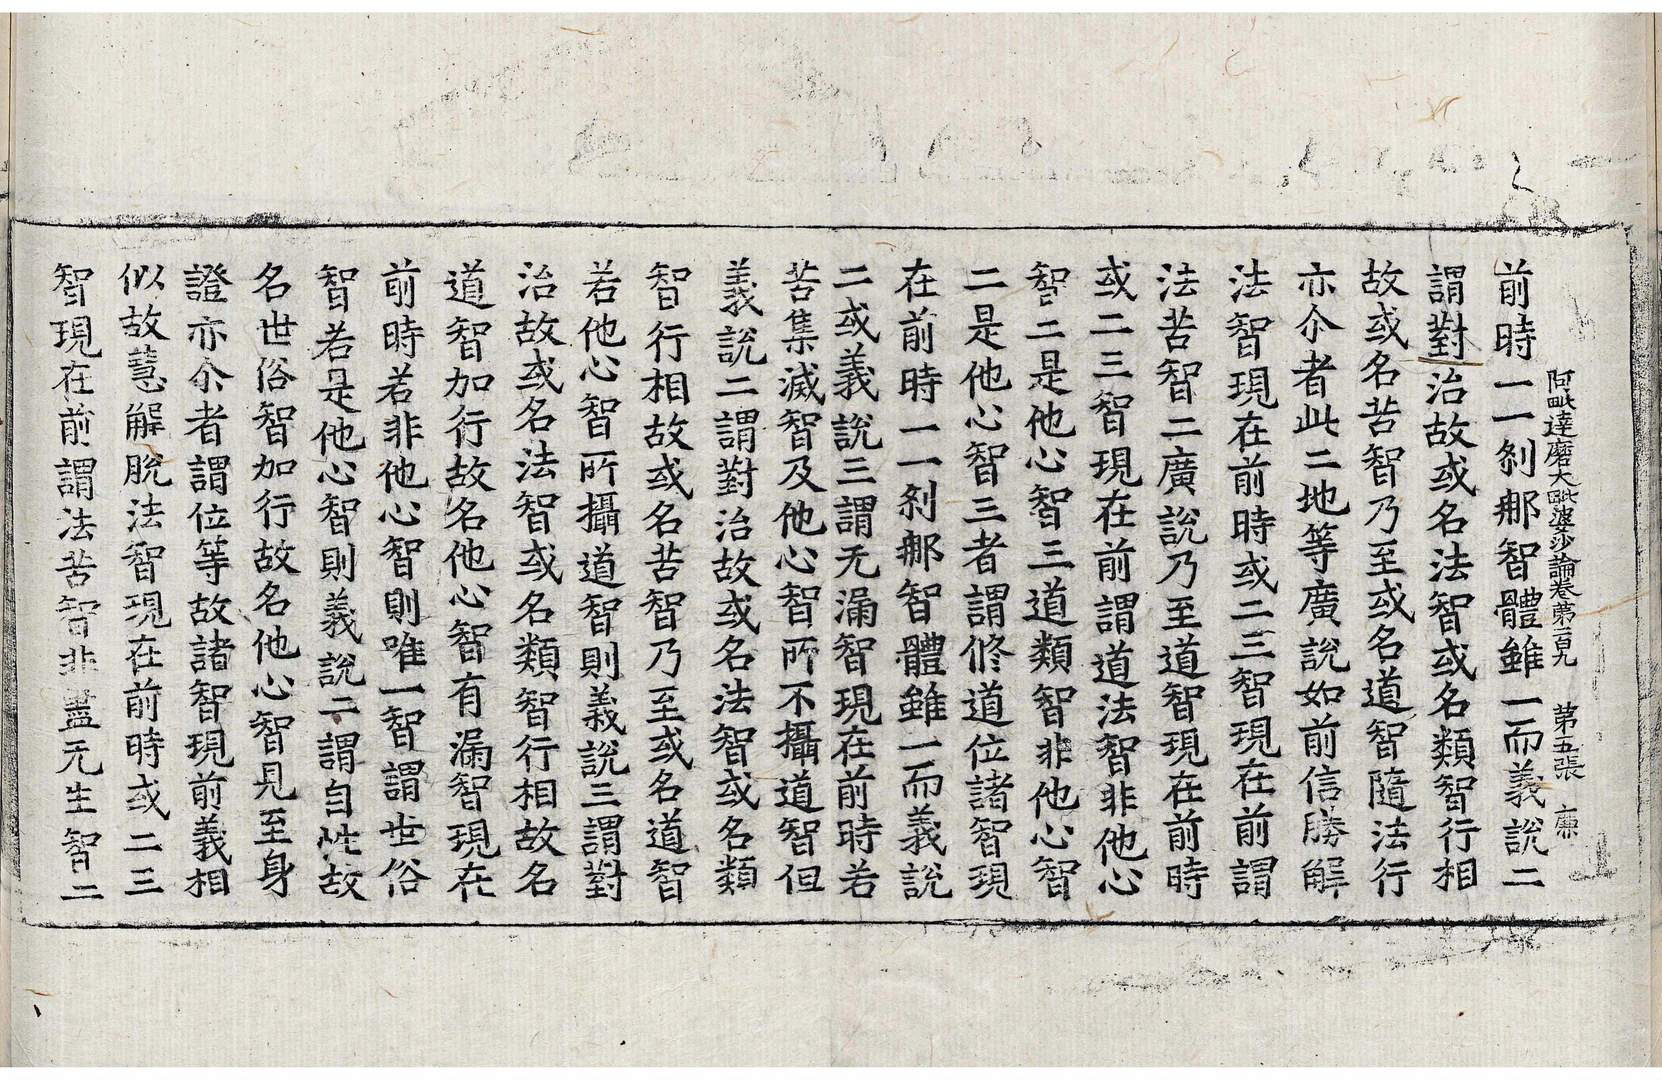 阿毗達磨大毗婆沙論卷第一百九　第五張　廉
前時一一剎那智體雖一而義說二
謂對治故或名法智或名類智行相
故或名苦智乃至或名道智隨法行
亦尒者此二地等廣說如前信勝解
法智現在前時或二三智現在前謂
法苦智二廣說乃至道智現在前時
或二三智現在前謂道法智非他心
智二是他心智三道類智非他心智
二是他心智三者謂修道位諸智現
在前時一一剎那智體雖一而義說
二或義說三謂无漏智現在前時若
苦集滅智及他心智所不攝道智但
義說二謂對治故或名法智或名類
智行相故或名苦智乃至或名道智
若他心智所攝道智則義說三謂對
治故或名法智或名類智行相故名
道智加行故名他心智有漏智現在
前時若非他心智則唯一智謂世俗
智若是他心智則義說二謂自性故
名世俗智加行故名他心智見至身
證亦尒者謂位等故諸智現前義相
似故慧解脫法智現在前時或二三
智現在前謂法苦智非盡无生智二